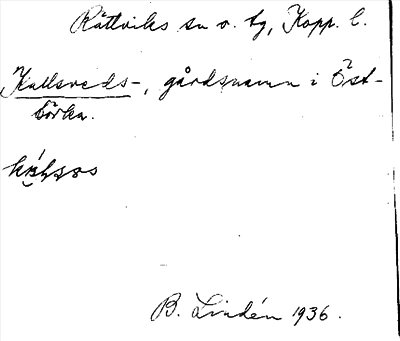 Rättviks sn o. by, Kopp. l.
Kullsveds-, gårdsnamn i Öst-
börka.
B. Lindén 1936.